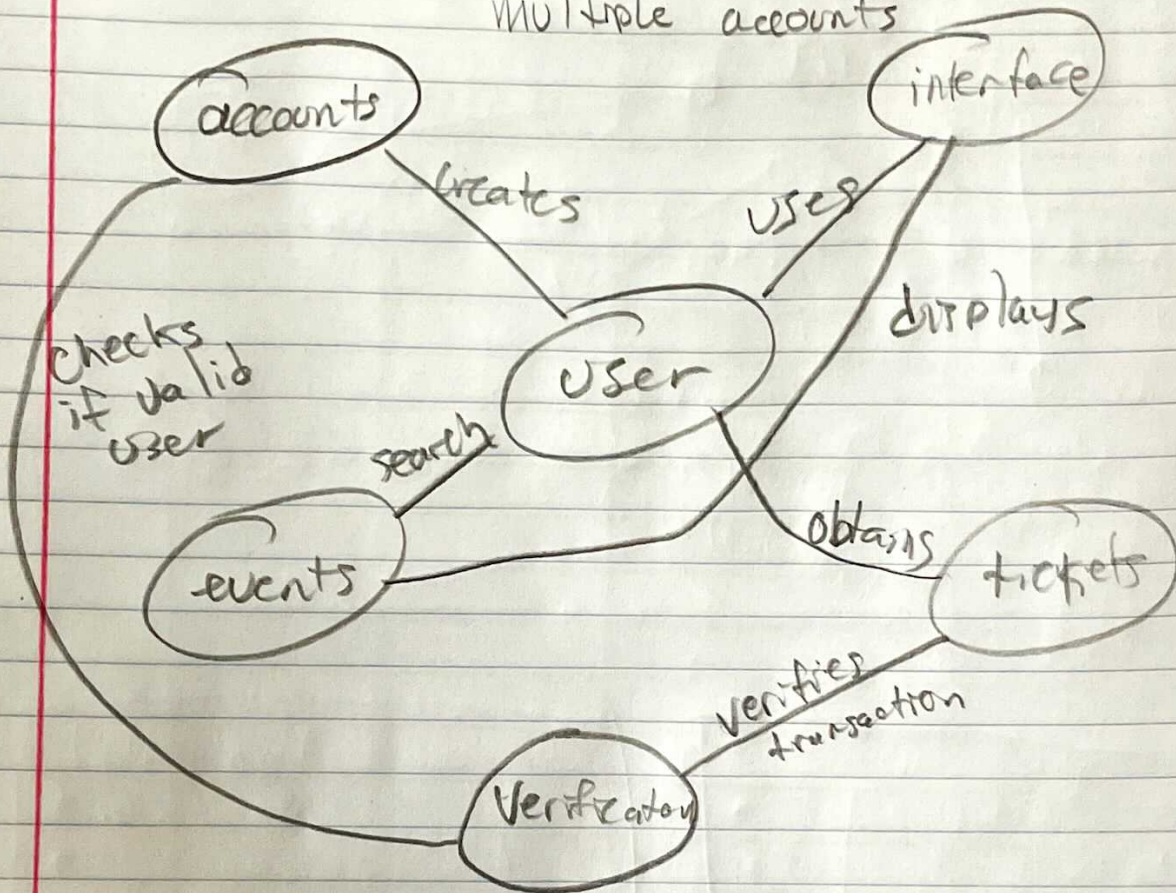 Multiple accounts
accounts
interface
creates
uses
displays
checks
if valid
user
user
search
obtains
events
tickets
verifies
transaction
Verification